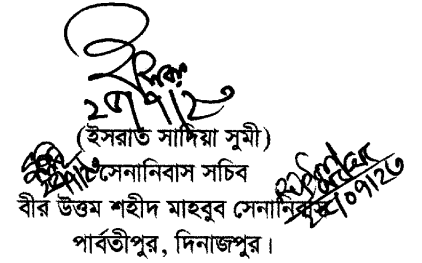 ২৫/৭/২৩
(ইসরাত সাদিয়া সুমী)
সেনানিবাস সচিব
বীর উত্তম শহীদ মাহবুব সেনানিবাস
পার্বতীপুর, দিনাজপুর।